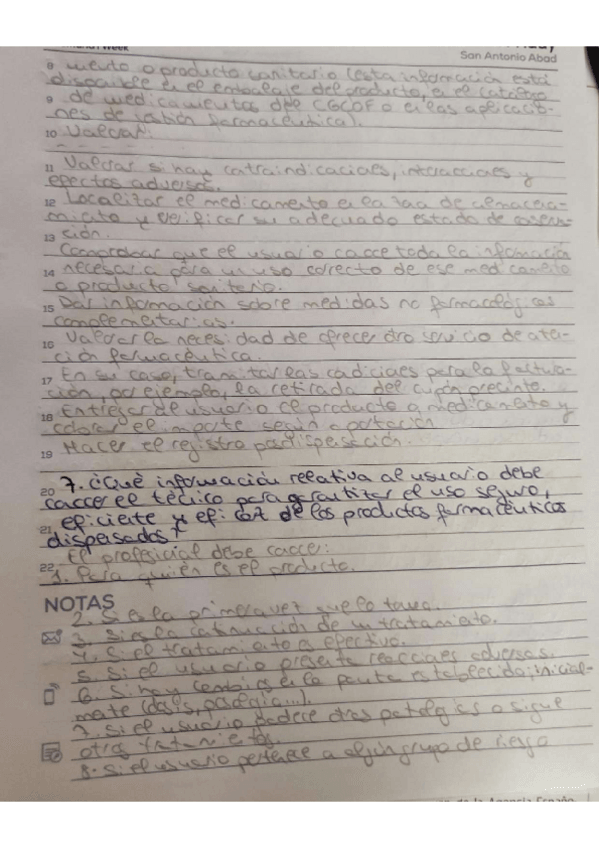 San Antonio Abad
8 mento o producto sanitario (esta información está
disponible en el embalaje del producto, en el catálogo
9 de medicamentos del CGCOF o en las aplicacio-
nes de gestión farmacéutica).
10 Valorar:
11 Valorar si hay contraindicaciones, interacciones y
efectos adversos.
12 Localizar el medicamento en la zona de almacena-
miento y verificar su adecuado estado de conserva-
13 ción.
Comprobar que el usuario conoce toda la información
14 necesaria para un uso correcto de ese medicamento
o producto sanitario.
15 Dar información sobre medidas no farmacológicas
complementarias.
16 Valorar la necesidad de ofrecer otro servicio de aten-
ción farmacéutica.
17 En su caso, tramitar las condiciones para la factura-
ción, por ejemplo, la retirada del cupón precinto.
18 Entregar al usuario el producto o medicamento y
cobrar el importe según aportación
19 Hacer el registro por dispensación.
20 7. ¿Qué información relativa al usuario debe
conocer el técnico para garantizar el uso seguro,
21 eficiente y eficaz de los productos farmacéuticos
dispensados?
El profesional debe conocer:
22 1. Para quién es el producto.
NOTAS
2. Si es la primera vez que lo toma.
3. Si es la continuación de un tratamiento.
4. Si el tratamiento es efectivo.
5. Si el usuario presenta reacciones adversas.
6. Si hay cambios en la pauta establecida inicial-
mente (dosis, posología...).
7. Si el usuario padece otras patologías o sigue
otros tratamientos.
8. Si el usuario pertenece a algún grupo de riesgo